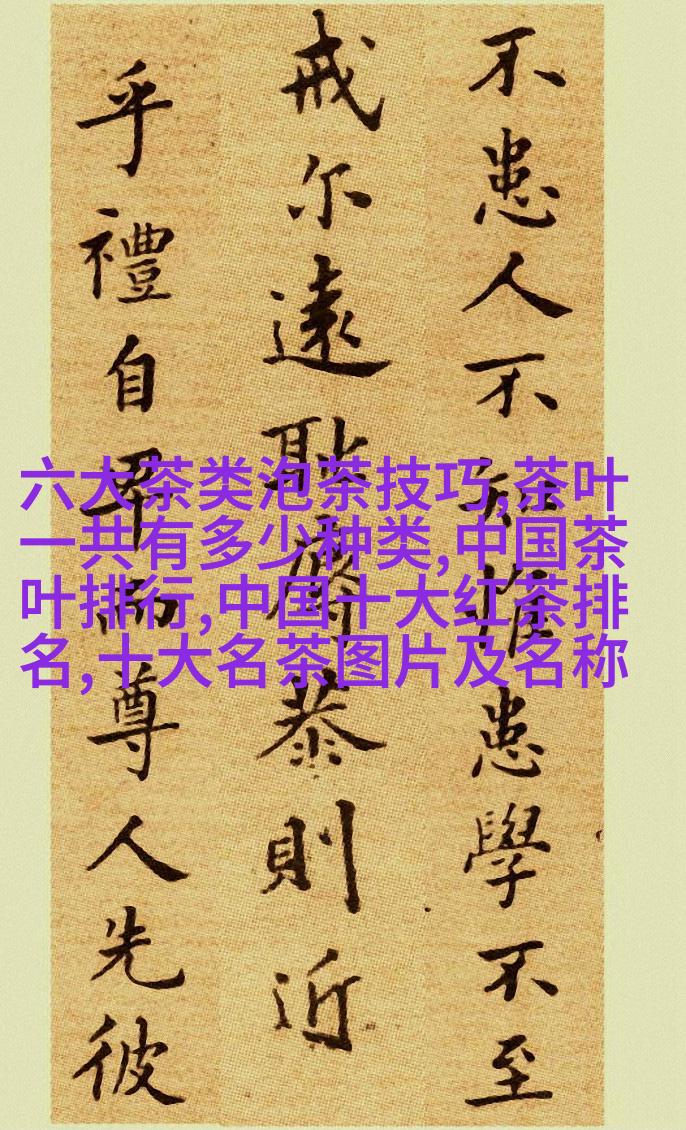 不患人不知惟患學不至
戒尔遠耻辱恭則近
乎禮自卑而尊人先彼
六大茶类泡茶技巧,茶叶
一共有多少种类,中国茶
叶排行,中国十大红茶排
名,十大名茶图片及名称